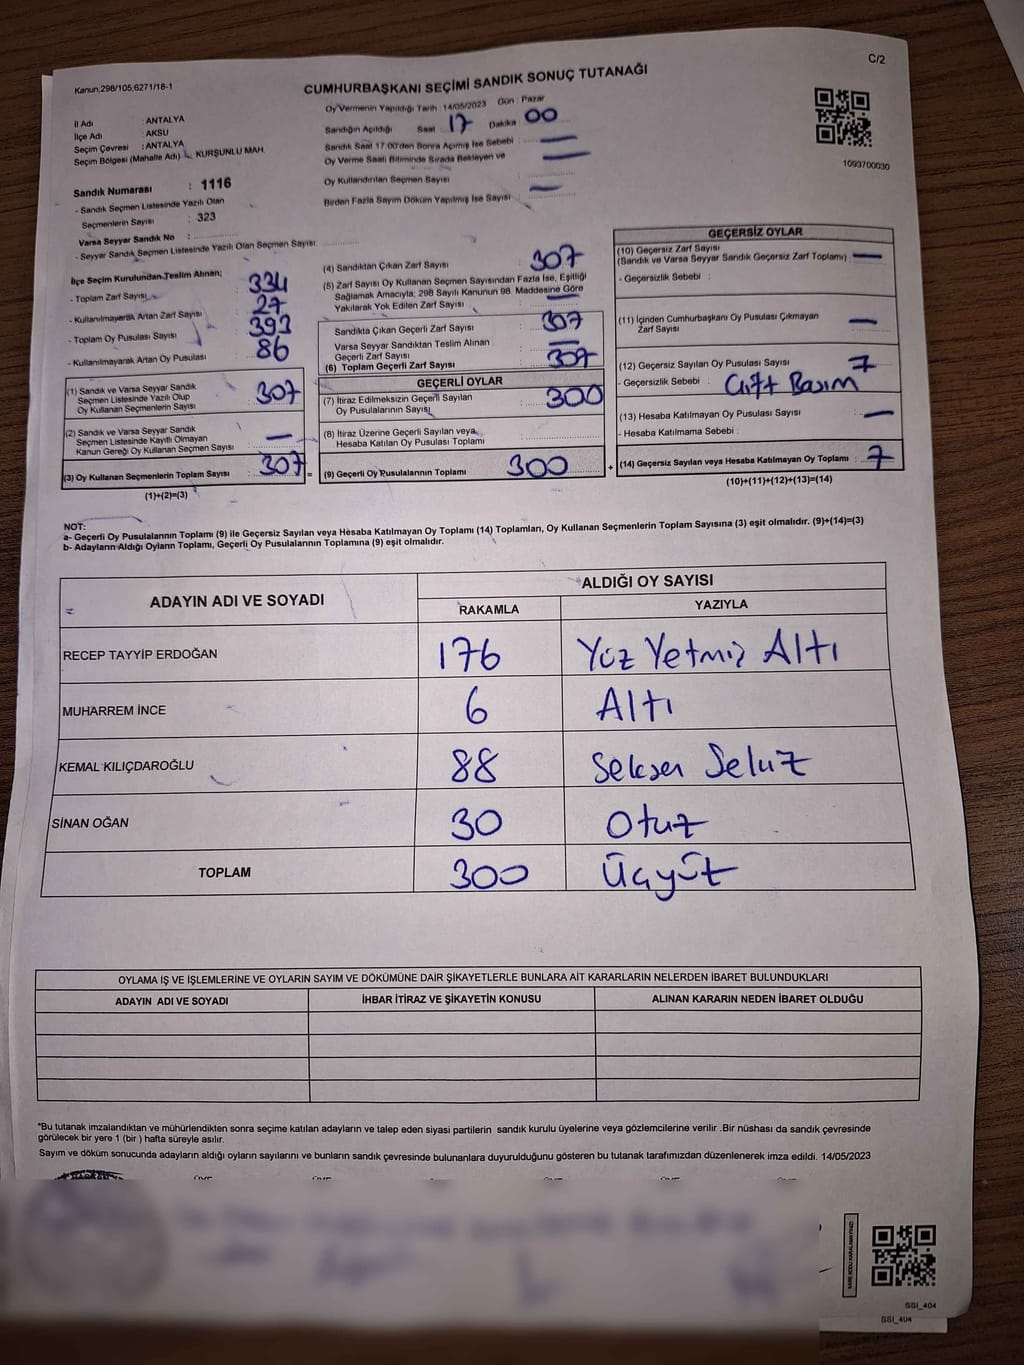 Kanun:298/105,6271/18-1
C/2
CUMHURBAŞKANI SEÇİMİ SANDIK SONUÇ TUTANAĞI
İl Adı : ANTALYA
İlçe Adı : AKSU
Seçim Çevresi : ANTALYA
Seçim Bölgesi (Mahalle Adı) KURŞUNLU MAH.
Sandık Numarası : 1116
- Sandık Seçmen Listesinde Yazılı Olan
Seçmenlerin Sayısı : 323
Varsa Seyyar Sandık No :
- Seyyar Sandık Seçmen Listesinde Yazılı Olan Seçmen Sayısı:
Oy Vermenin Yapıldığı Tarih : 14/05/2023 Gün : Pazar
Sandığın Açıldığı Saat 17 Dakika 00
Sandık Saat 17:00'den Sonra Açmış İse Sebebi :
Oy Verme Saati Bitiminde Sırada Bekleyen ve
Oy Kullandırılan Seçmen Sayısı :
Birden Fazla Sayım Döküm Yapılmış İse Sayısı :
1093700030
İlçe Seçim Kurulundan Teslim Alınan;
- Toplam Zarf Sayısı : 334
- Kullanılmayarak Artan Zarf Sayısı : 27
- Toplam Oy Pusulası Sayısı : 393
- Kullanılmayarak Artan Oy Pusulası : 86
(1) Sandık ve Varsa Seyyar Sandık
Seçmen Listesinde Yazılı Olup
Oy Kullanan Seçmenlerin Sayısı : 307
(2) Sandık ve Varsa Seyyar Sandık
Seçmen Listesinde Kayıtlı Olmayan
Kanun Gereği Oy Kullanan Seçmen Sayısı : —
(3) Oy Kullanan Seçmenlerin Toplam Sayısı : 307 =
(1)+(2)=(3)
(4) Sandıktan Çıkan Zarf Sayısı : 307
(5) Zarf Sayısı Oy Kullanan Seçmen Sayısından Fazla İse, Eşitliği
Sağlamak Amacıyla, 298 Sayılı Kanunun 98. Maddesine Göre
Yakılarak Yok Edilen Zarf Sayısı : —
Sandıkta Çıkan Geçerli Zarf Sayısı : 307
Varsa Seyyar Sandıktan Teslim Alınan
Geçerli Zarf Sayısı : —
(6) Toplam Geçerli Zarf Sayısı : 307
GEÇERLİ OYLAR
(7) İtiraz Edilmeksizin Geçerli Sayılan
Oy Pusulalarının Sayısı : 300
(8) İtiraz Üzerine Geçerli Sayılan veya
Hesaba Katılan Oy Pusulası Toplamı :
(9) Geçerli Oy Pusulalarının Toplamı : 300 +
GEÇERSİZ OYLAR
(10) Geçersiz Zarf Sayısı
(Sandık ve Varsa Seyyar Sandık Geçersiz Zarf Toplamı) : —
- Geçersizlik Sebebi :
(11) İçinden Cumhurbaşkanı Oy Pusulası Çıkmayan
Zarf Sayısı : —
(12) Geçersiz Sayılan Oy Pusulası Sayısı : 7
- Geçersizlik Sebebi : Çift Basım
(13) Hesaba Katılmayan Oy Pusulası Sayısı : —
- Hesaba Katılmama Sebebi :
(14) Geçersiz Sayılan veya Hesaba Katılmayan Oy Toplamı : 7
(10)+(11)+(12)+(13)=(14)
NOT:
a- Geçerli Oy Pusulalarının Toplamı (9) ile Geçersiz Sayılan veya Hesaba Katılmayan Oy Toplamı (14) Toplamları, Oy Kullanan Seçmenlerin Toplam Sayısına (3) eşit olmalıdır. (9)+(14)=(3)
b- Adayların Aldığı Oyların Toplamı, Geçerli Oy Pusulalarının Toplamına (9) eşit olmalıdır.
ADAYIN ADI VE SOYADI ALDIĞI OY SAYISI
RAKAMLA YAZIYLA
RECEP TAYYİP ERDOĞAN 176 Yüz Yetmiş Altı
MUHARREM İNCE 6 Altı
KEMAL KILIÇDAROĞLU 88 Seksen Sekiz
SİNAN OĞAN 30 Otuz
TOPLAM 300 Üçyüz
OYLAMA İŞ VE İŞLEMLERİNE VE OYLARIN SAYIM VE DÖKÜMÜNE DAİR ŞİKAYETLERLE BUNLARA AİT KARARLARIN NELERDEN İBARET BULUNDUKLARI
ADAYIN ADI VE SOYADI İHBAR İTİRAZ VE ŞİKAYETİN KONUSU ALINAN KARARIN NEDEN İBARET OLDUĞU
*Bu tutanak imzalandıktan ve mühürlendikten sonra seçime katılan adayların ve talep eden siyasi partilerin sandık kurulu üyelerine veya gözlemcilerine verilir .Bir nüshası da sandık çevresinde
görülecek bir yere 1 (bir ) hafta süreyle asılır.
Sayım ve döküm sonucunda adayların aldığı oyların sayılarını ve bunların sandık çevresinde bulunanlara duyurulduğunu gösteren bu tutanak tarafımızdan düzenlenerek imza edildi. 14/05/2023
KARE KODU KARALAMAYINIZ!
SSI_404
SSI_404